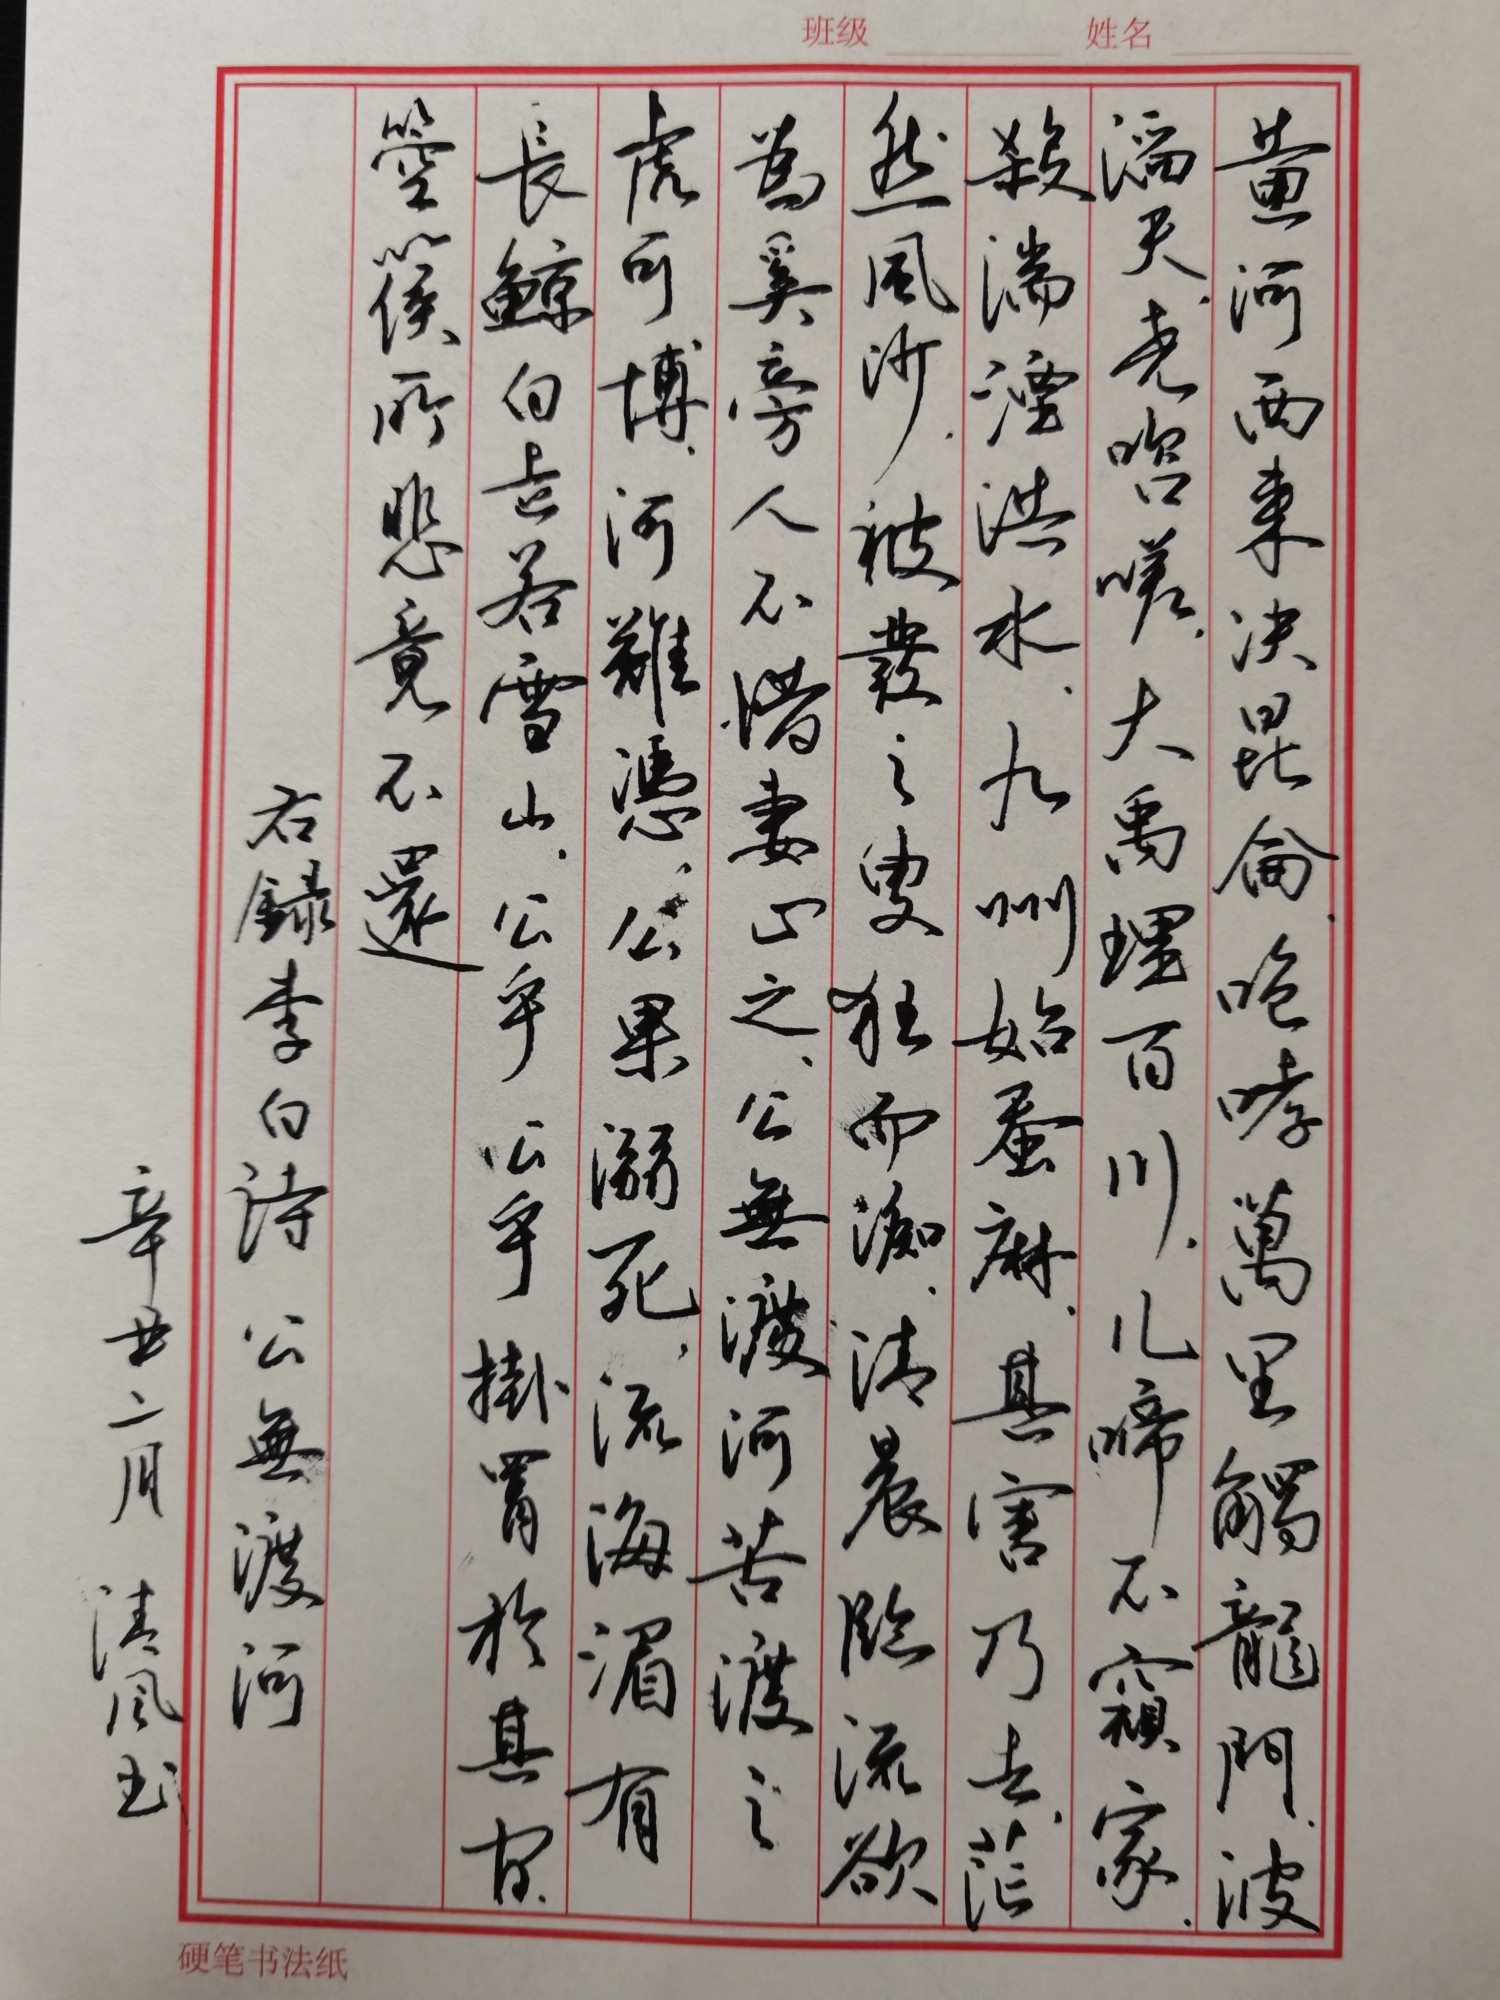 班级 姓名
黄河西来决昆侖.咆哮萬里觸龍門.波
滔天.堯咨嗟.大禹理百川.儿啼不窺家.
殺湍湮洪水.九州始蚕麻.其害乃去.茫
然風沙.被髮之叟狂而痴.清晨臨流欲
為奚旁人不惜妻止之.公無渡河苦渡之
虎可搏.河難憑.公果溺死.流海湄有
長鯨白齿若雪山.公乎公乎掛罥於其間.
箜篌所悲竟不還
右録李白詩 公無渡河
辛丑二月 清风书
硬笔书法纸